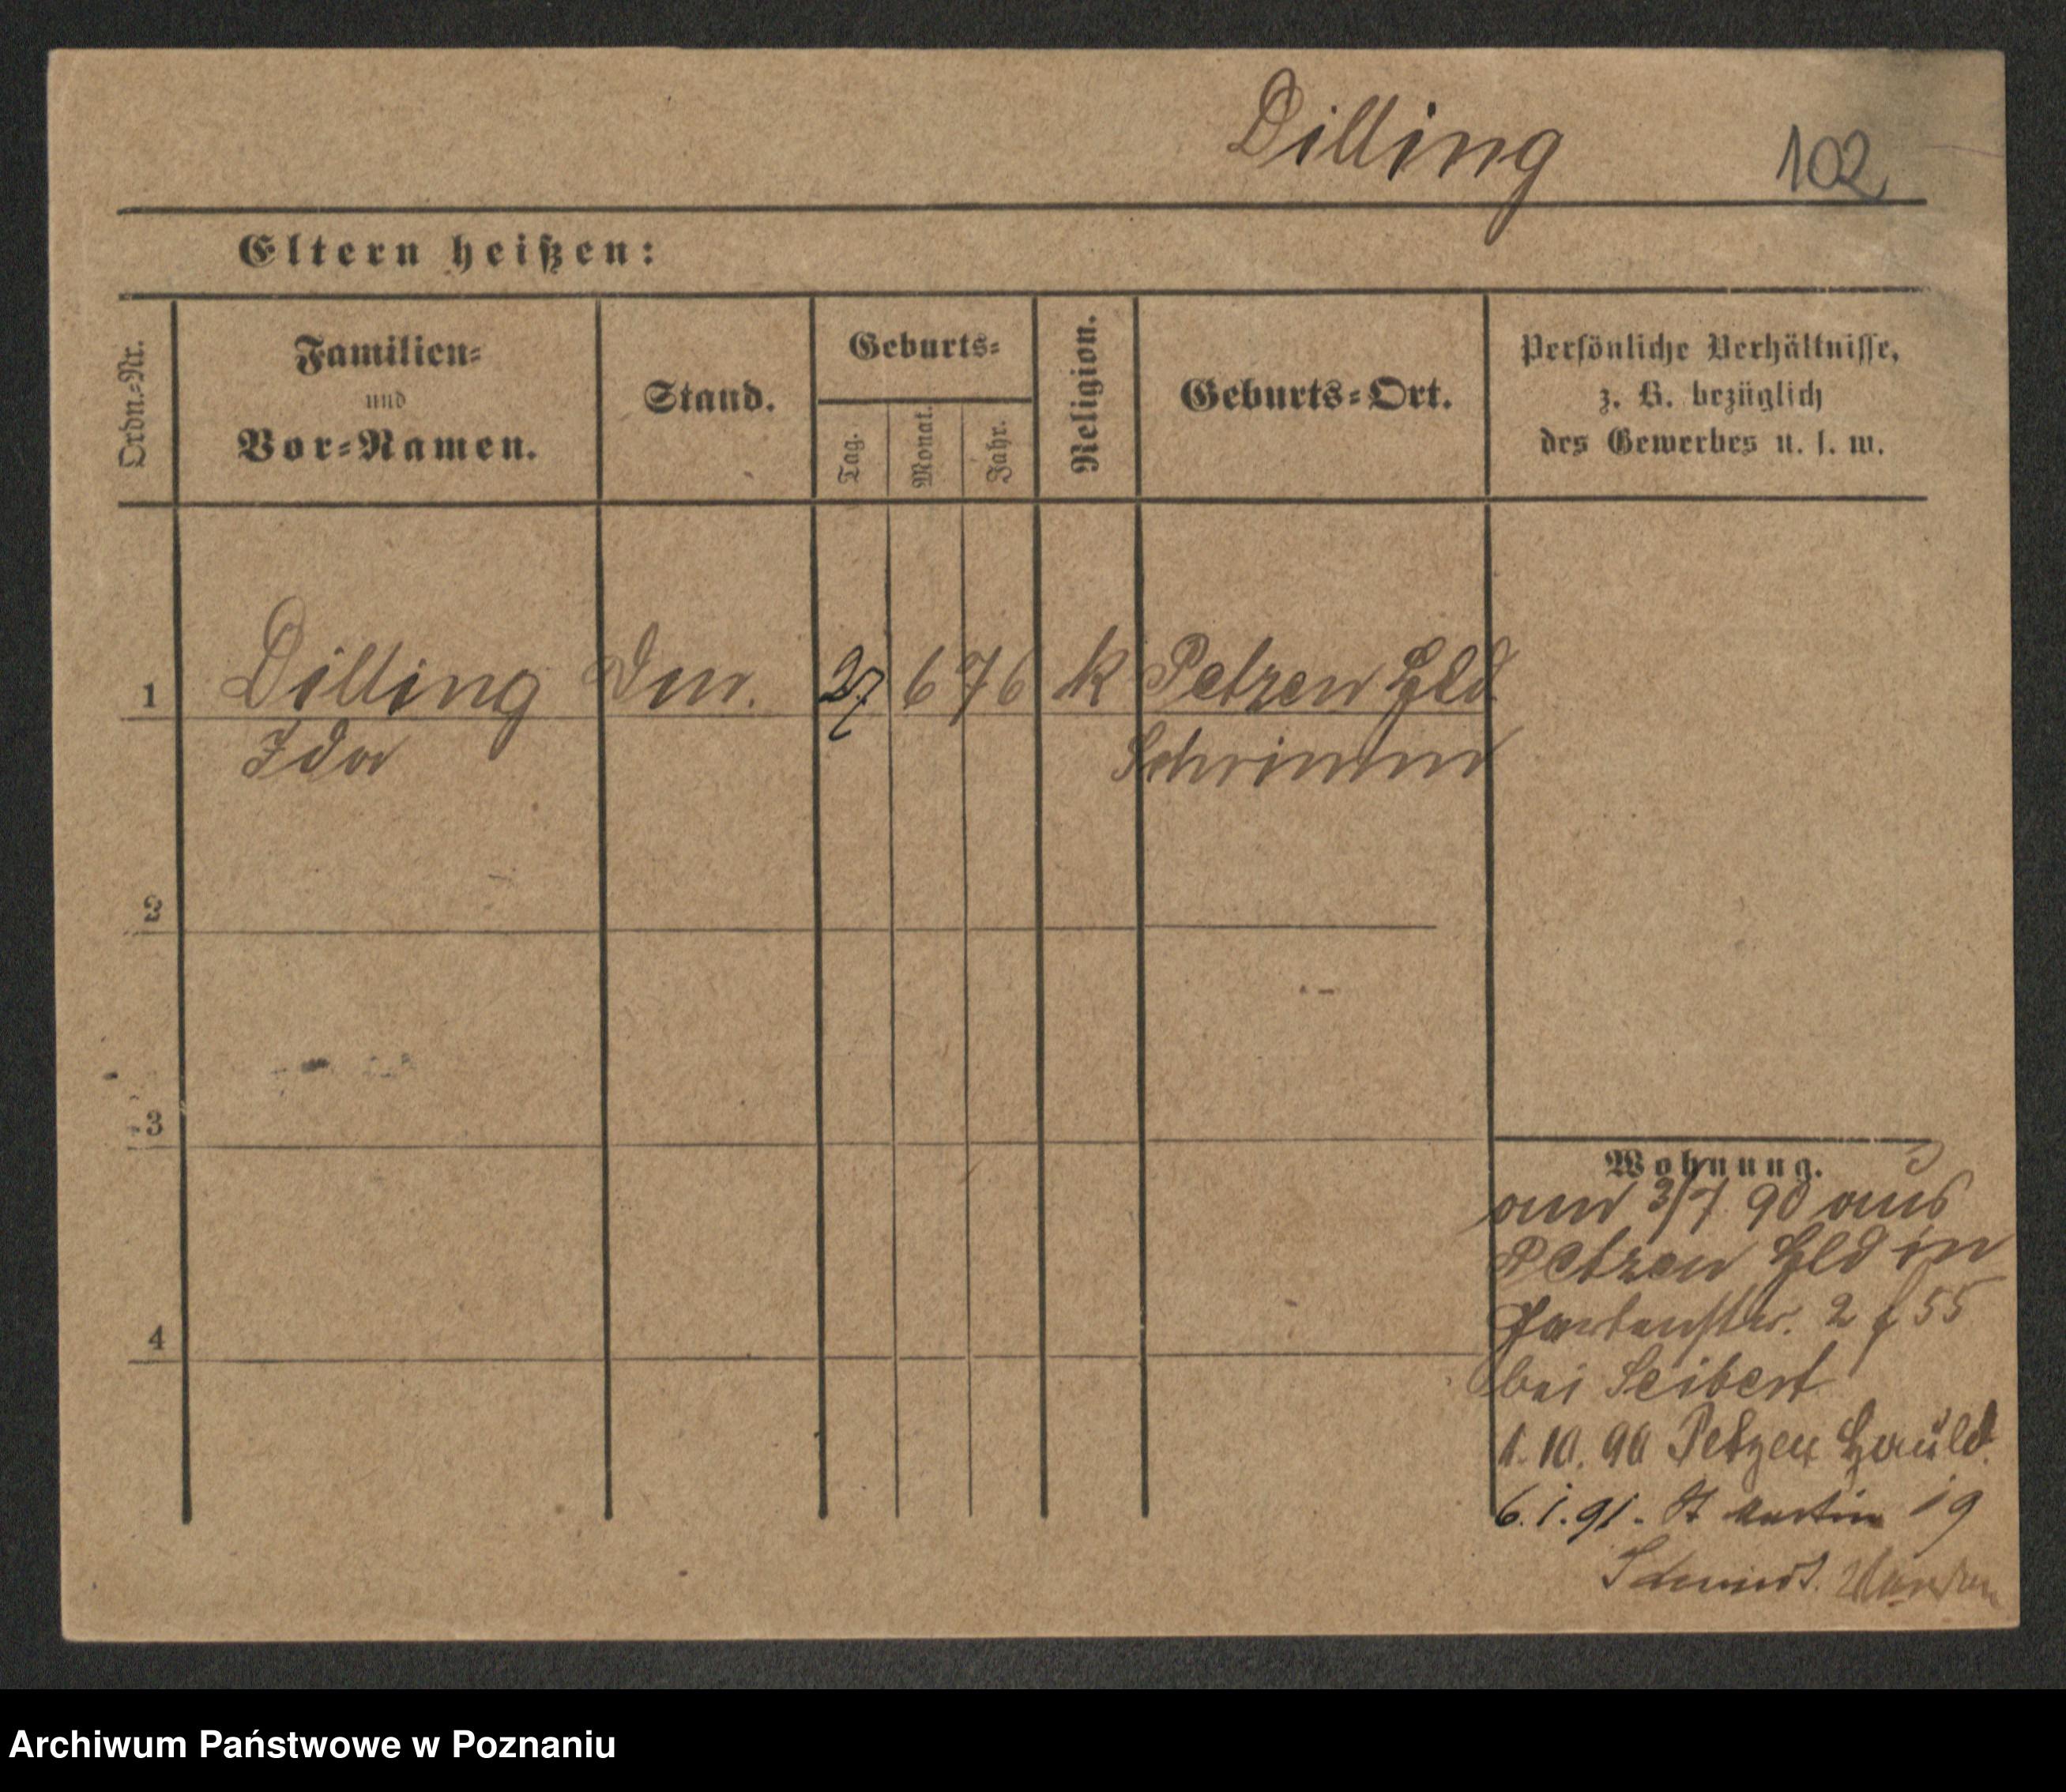 Dilling 102
Eltern heißen:
Ordn.=Nr.
Familien=
und
Vor=Namen.
Stand.
Geburts=
Tag.
Monat.
Jahr.
Religion.
Geburts=Ort.
Persönliche Verhältnisse,
z. B. bezüglich
des Gewerbes u. s. w.
1 Dilling 27 6 76 k Petzen Hld.
Ida Schrimm
2
3
4
Wohnung.
3/7 90 aus
Petzen Hld in
Gartenstr. 2 f 55
bei Seibert
1.10.90 Petzen Hauld.
6.1.91. St Martin 19
Schmidt.
Archiwum Państwowe w Poznaniu